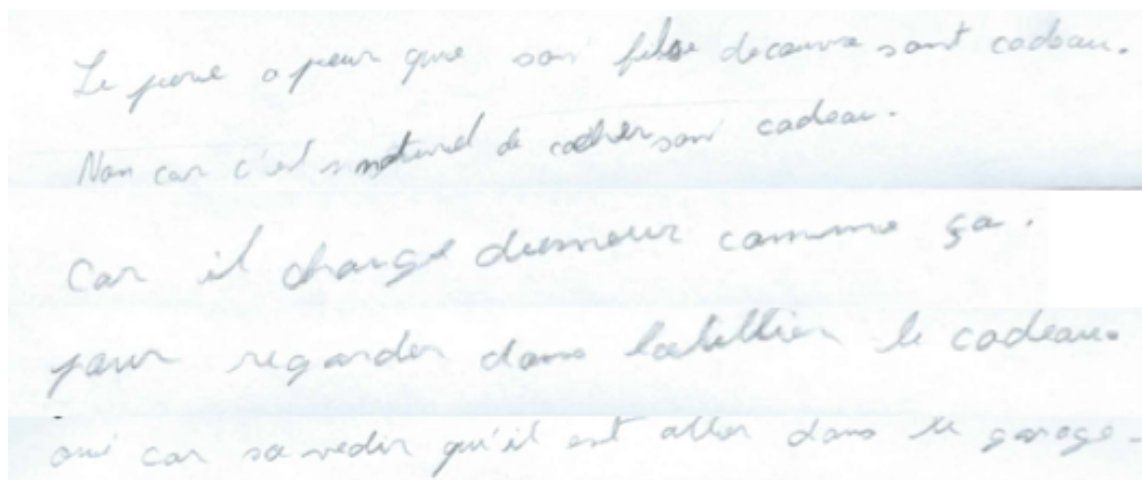 Le perre a peur que son fils decouvre sont cadeau.
Non car c'est naturel de cacher son cadeau.
Car il change dumeur comme ça.
pour regarder dans le cadeau.
oui car sa vedir qu'il est aller dans le garage.